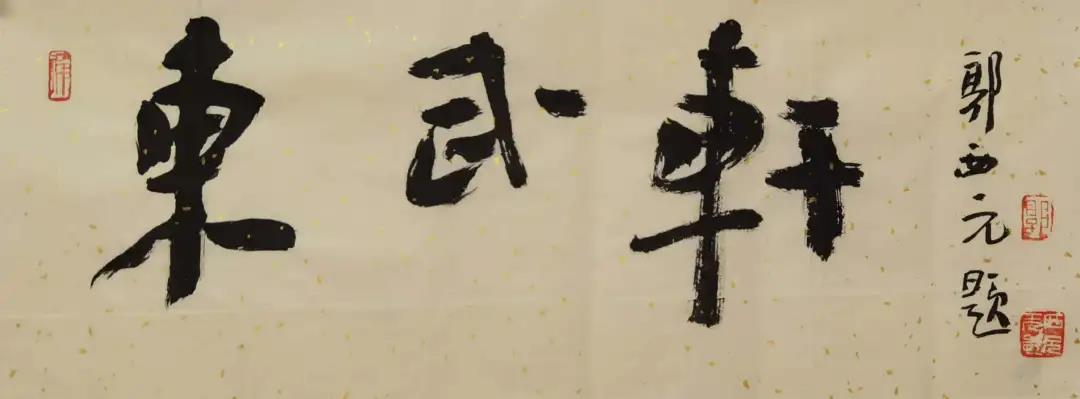 東武軒
郭西元題